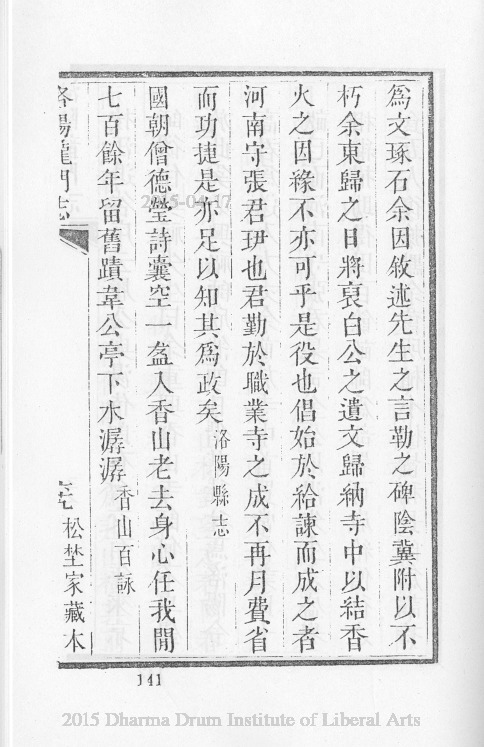 爲文琢石余因敘述先生之言勒之碑陰冀附以不
朽余東歸之日將裒白公之遺文歸納寺中以結香
火之因緣不亦可乎是役也倡始於給諫而成之者
河南守張君玾也君勤於職業寺之成不再月費省
而功捷是亦足以知其爲政矣洛陽縣志
國朝僧德瑩詩囊空一盋入香山老去身心任我閒
七百餘年留舊蹟韋公亭下水潺潺香山百詠
洛陽龍門志
松埜家藏本
141
2015-04-17
2015 Dharma Drum Institute of Liberal Arts